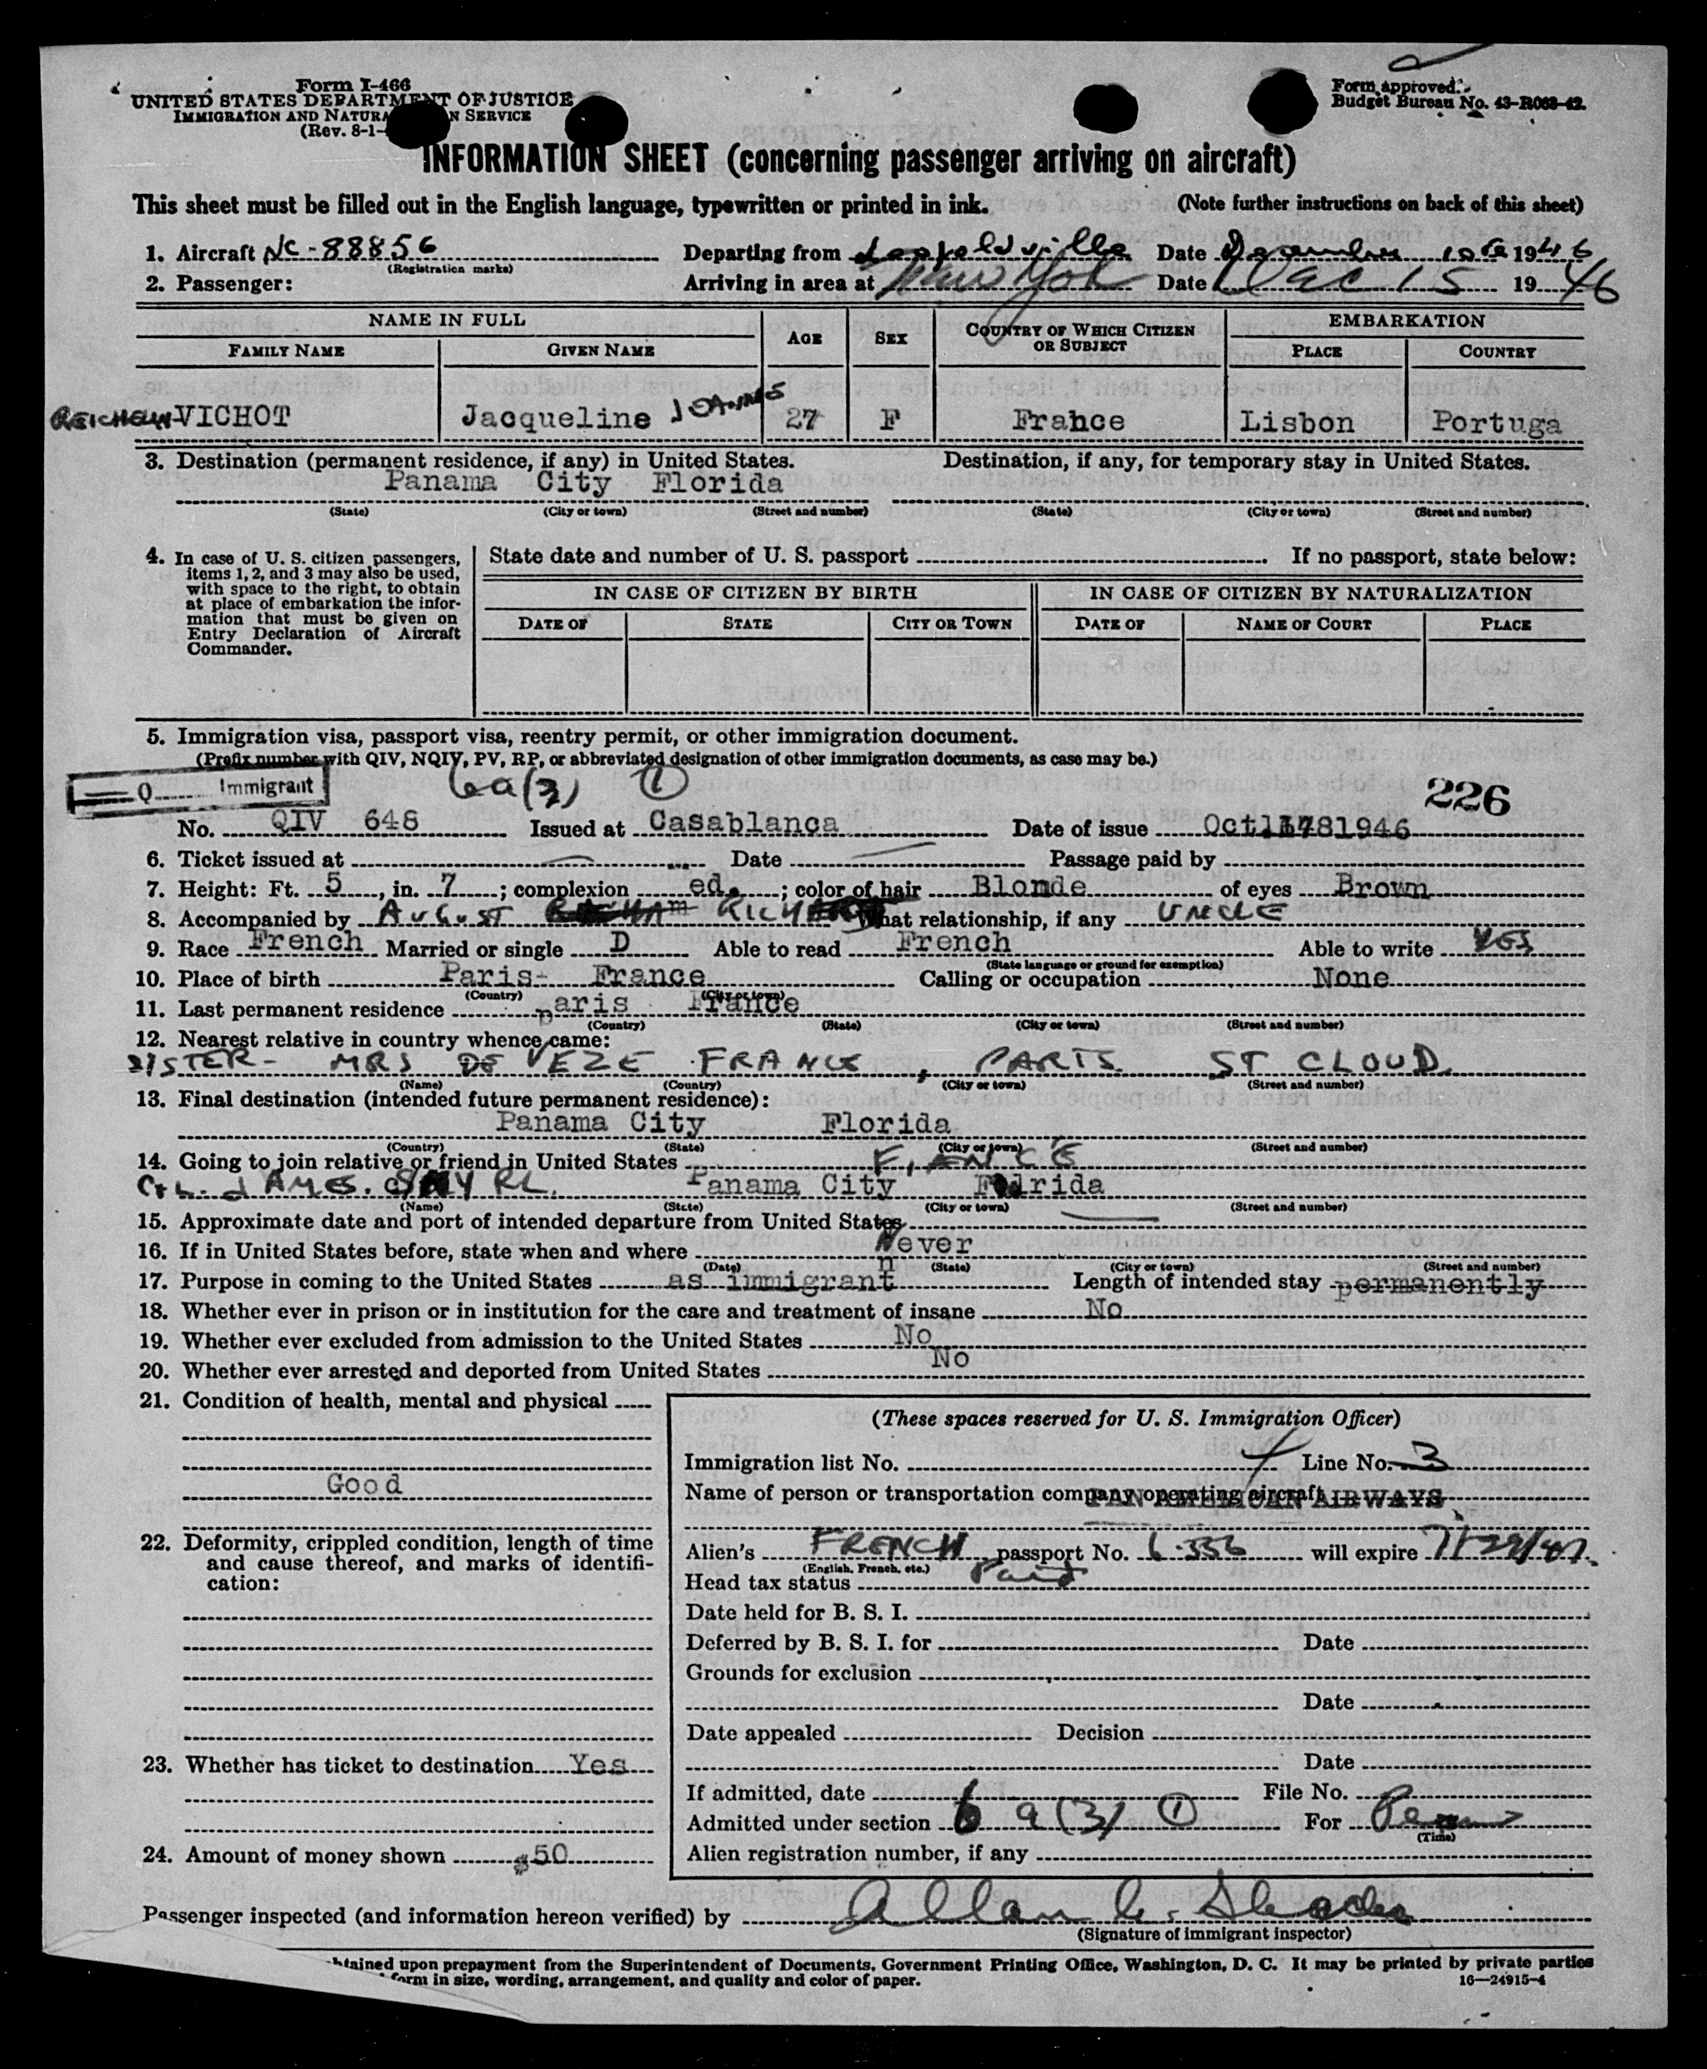 Form I-466
UNITED STATES DEPARTMENT OF JUSTICE
IMMIGRATION AND NATURA N SERVICE
(Rev. 8-1-
Form approved.
Budget Bureau No. 43-R063-42.
INFORMATION SHEET (concerning passenger arriving on aircraft)
This sheet must be filled out in the English language, typewritten or printed in ink. (Note further instructions on back of this sheet)
1. Aircraft NC-88856 Departing from Leopoldville Date December 1946
(Registration marks)
2. Passenger: Arriving in area at New York Date Dec 15 1946
NAME IN FULL AGE SEX COUNTRY OF WHICH CITIZEN OR SUBJECT EMBARKATION
FAMILY NAME GIVEN NAME PLACE COUNTRY
VICHOT Jacqueline 27 F France Lisbon Portuga
3. Destination (permanent residence, if any) in United States. Destination, if any, for temporary stay in United States.
Panama City Florida
(State) (City or town) (Street and number) (State) (City or town) (Street and number)
4. In case of U. S. citizen passengers, items 1, 2, and 3 may also be used, with space to the right, to obtain at place of embarkation the information that must be given on Entry Declaration of Aircraft Commander.
State date and number of U. S. passport If no passport, state below:
IN CASE OF CITIZEN BY BIRTH IN CASE OF CITIZEN BY NATURALIZATION
DATE OF STATE CITY OR TOWN DATE OF NAME OF COURT PLACE
5. Immigration visa, passport visa, reentry permit, or other immigration document.
(Prefix number with QIV, NQIV, PV, RP, or abbreviated designation of other immigration documents, as case may be.)
Q Immigrant 6a(3) 1 226
No. QIV 648 Issued at Casablanca Date of issue Oct 1946
6. Ticket issued at Date Passage paid by
7. Height: Ft. 5, in. 7; complexion ed.; color of hair Blonde of eyes Brown
8. Accompanied by AUGUST What relationship, if any UNCLE
9. Race French Married or single D Able to read French Able to write YES
(State language or ground for exemption)
10. Place of birth Paris- France Calling or occupation None
(Country) (City or town)
11. Last permanent residence paris France
(Country) (State) (City or town) (Street and number)
12. Nearest relative in country whence came:
SISTER- MRS DE VEZE FRANCE, PARIS ST CLOUD
(Name) (Country) (City or town) (Street and number)
13. Final destination (intended future permanent residence):
Panama City Florida
(Country) (State) (City or town) (Street and number)
14. Going to join relative or friend in United States FIANCE
JAMES. Panama City Florida
(Name) (State) (City or town) (Street and number)
15. Approximate date and port of intended departure from United States
16. If in United States before, state when and where Never
(Date) (State) (City or town) (Street and number)
17. Purpose in coming to the United States as immigrant Length of intended stay permanently
18. Whether ever in prison or in institution for the care and treatment of insane No
19. Whether ever excluded from admission to the United States No
20. Whether ever arrested and deported from United States No
21. Condition of health, mental and physical
Good
22. Deformity, crippled condition, length of time and cause thereof, and marks of identification:
23. Whether has ticket to destination Yes
24. Amount of money shown $50
(These spaces reserved for U. S. Immigration Officer)
Immigration list No. 4 Line No. 3
Name of person or transportation company operating aircraft PAN AMERICAN AIRWAYS
Alien's FRENCH passport No. 6.336 will expire
(English, French, etc.)
Head tax status Paid
Date held for B. S. I.
Deferred by B. S. I. for Date
Grounds for exclusion
Date
Date appealed Decision
Date
If admitted, date File No.
Admitted under section 6 a (3) 1 For
(Time)
Alien registration number, if any
Passenger inspected (and information hereon verified) by Allan
(Signature of immigrant inspector)
tained upon prepayment from the Superintendent of Documents, Government Printing Office, Washington, D. C. It may be printed by private parties
form in size, wording, arrangement, and quality and color of paper. 16—24915-4